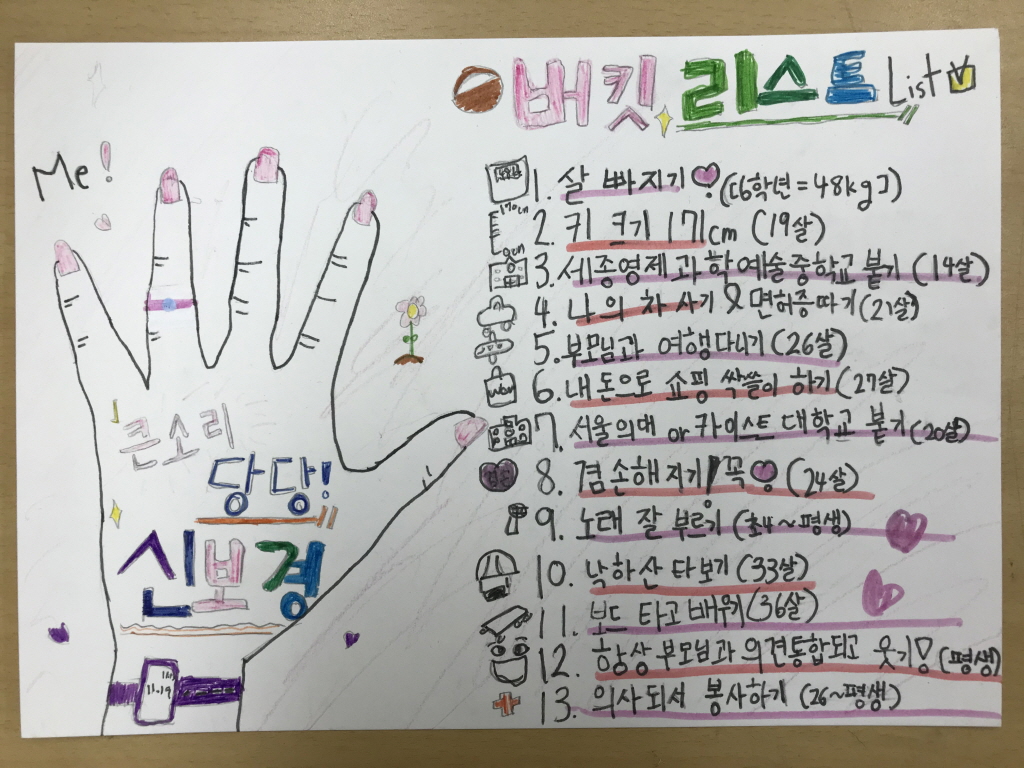 버킷 리스트 List
Me!
1. 살 빠지기 ([6학년 = 48kg])
2. 키 크기 171cm (19살)
3. 세종영제과학예술중학교 붙기 (14살)
4. 나의 차 사기 & 면허증따기 (21살)
5. 부모님과 여행다니기 (26살)
6. 내돈으로 쇼핑 싹쓸이 하기 (27살)
7. 서울의대 or 카이스트 대학교 붙기 (20살)
8. 겸손해지기! 꼭 (24살)
9. 노래 잘 부르기 (초4~평생)
10. 낙하산 타보기 (33살)
11. 보드 타고 배우기 (36살)
12. 항상 부모님과 의견통합되고 웃기! (평생)
13. 의사되서 봉사하기 (26~평생)
큰소리
당당!
신보경
11.19